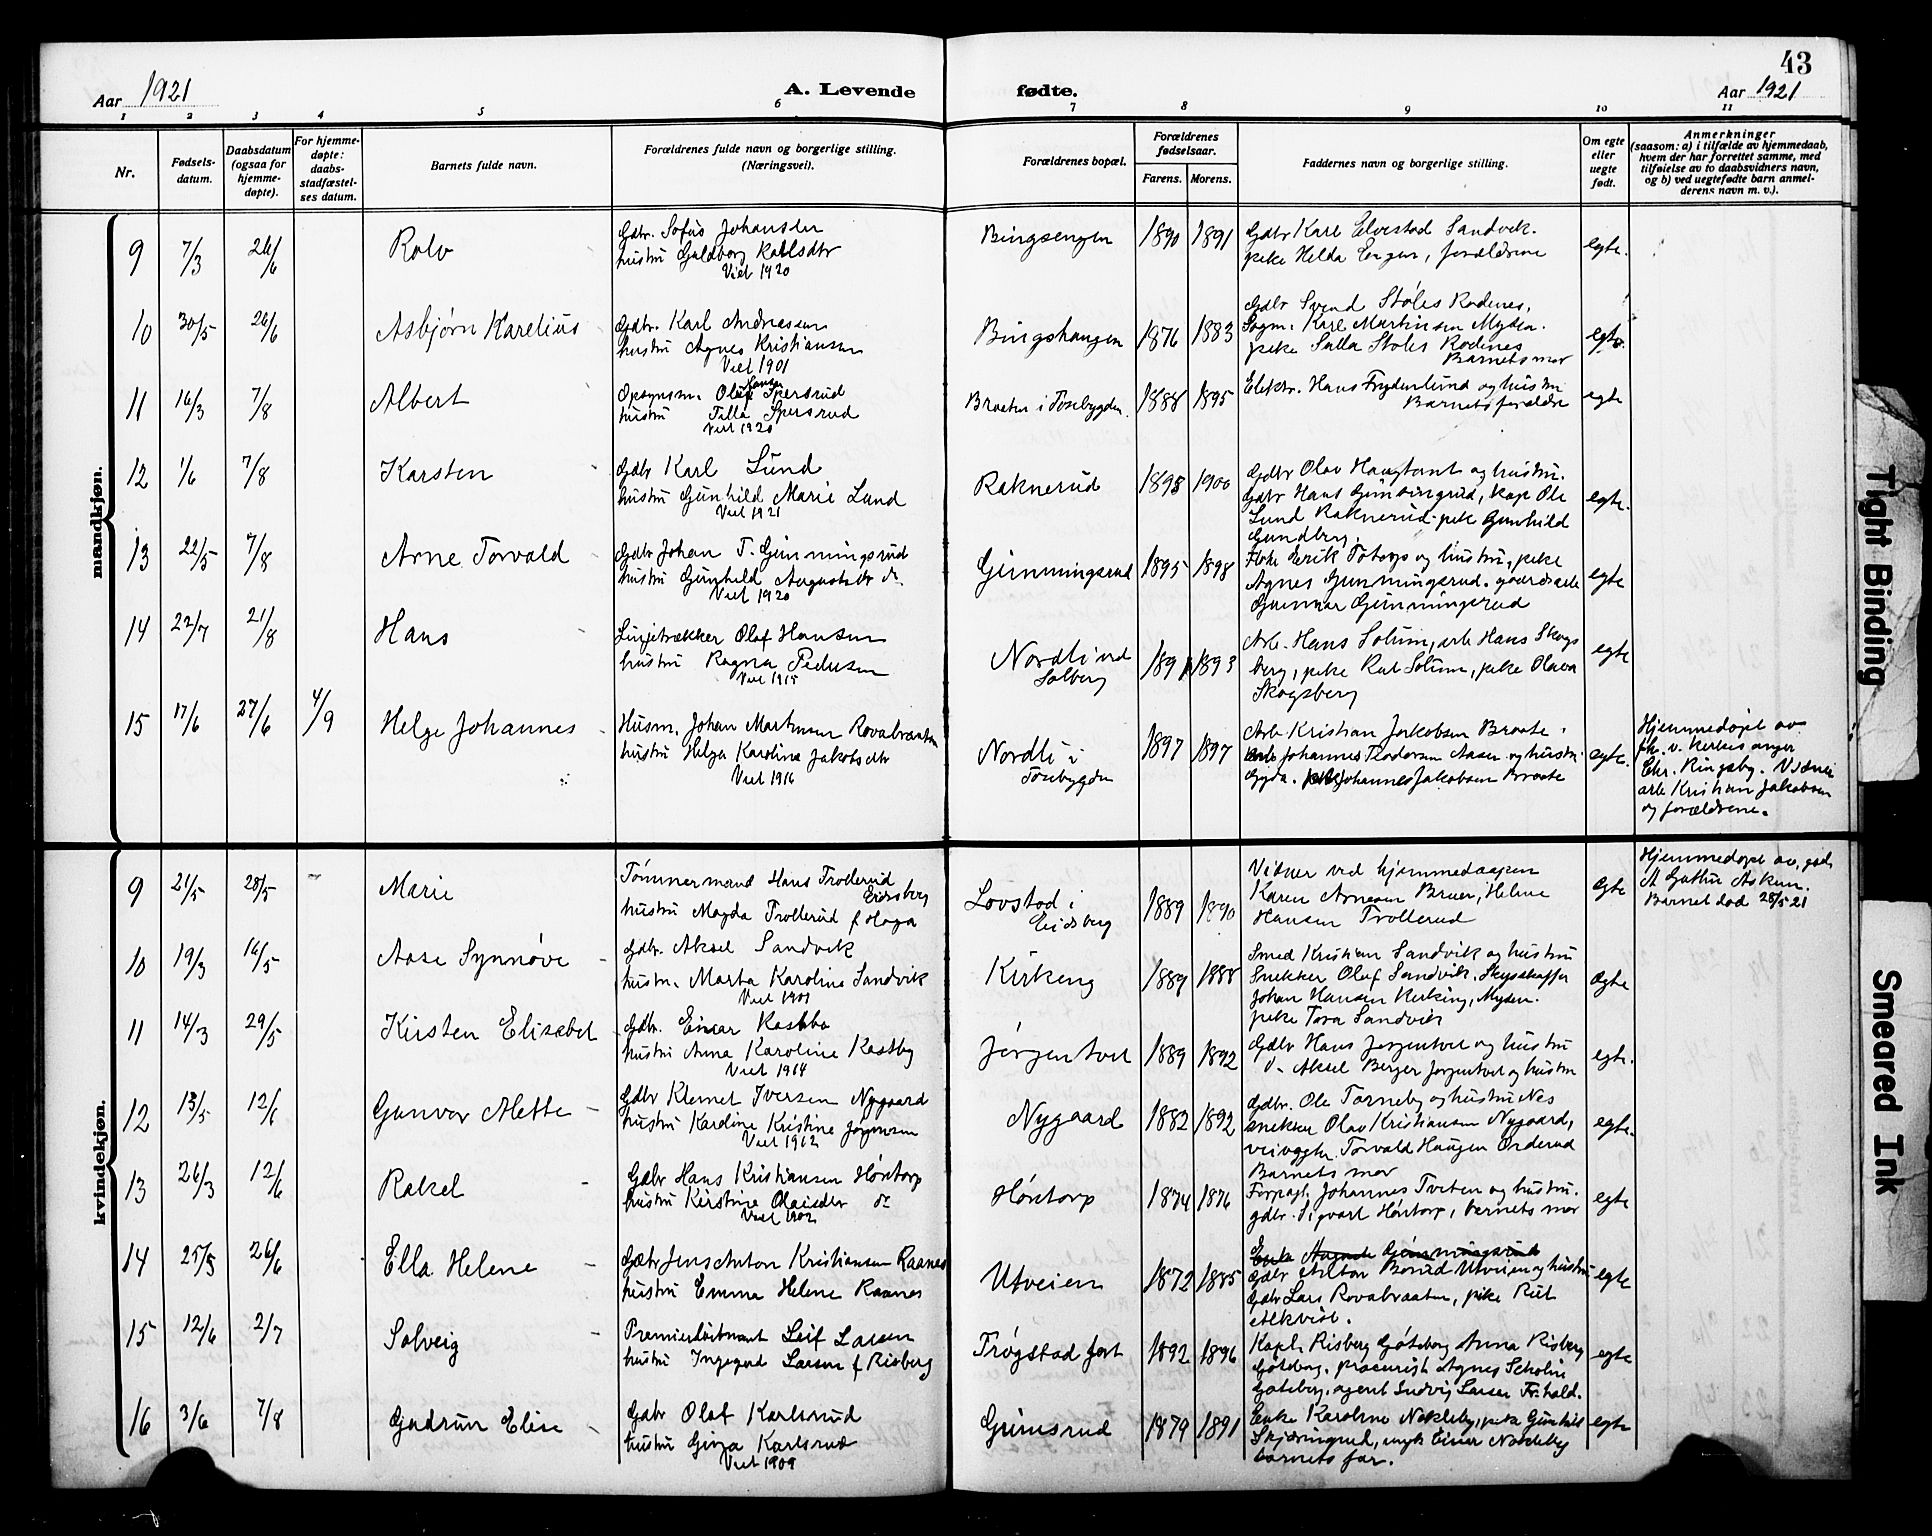 43
Aar 1921
A. Levende
fødte.
Aar 1921
1 2 3 4 5 6 7 8 9 10 11
Nr.
Fødsels-
datum.
Daabsdatum
(ogsaa for
hjemme-
døpte).
For hjemme-
døpte:
daabs-
stadfæstel-
ses datum.
Barnets fulde navn.
Forældrenes fulde navn og borgerlige stilling.
(Næringsvei).
Forældrenes bopæl.
Forældrenes
fødselsaar.
Farens. Morens.
Faddernes navn og borgerlige stilling.
Om egte
eller
uegte
født.
Anmerkninger
(saasom: a) i tilfælde av hjemmedaab,
hvem der har forrettet samme, med
tilføielse av to daabsvidners navn,
og b) ved uegtefødte barn anmel-
derens navn m. v.).
mandkjøn.
9 7/3 26/6 Rolv
Gdbr. Sofus Johansen
hustru
Viet 1920
Bingsengen 1890 1891
Gdbr Karl Elvestad Sandvik.
pike Helda Engen, forældrene
egte.
10 30/5 26/6 Asbjørn Karelius
Gdbr. Karl Andreassen
hustru Agnes Kristiansen
Viet 1901
Bingshaugen 1876 1883
Gdbr Svend Støles Rødenes,
Karl Martinsen Mysen.
pike Støles Rødenes
Barnets mor
egte.
11 16/3 7/8 Albert
Opsynsm. Olaf Hansen Spersrud
hustru Tilla Spersrud
Viet 1920
Braaten i Tosebygden. 1888 1895
Elektr. Hans Frydenlund og hustru
Barnets forældre
egte
12 1/6 7/8 Karsten
Gdbr Karl Lund
hustru Gunhild Marie Lund
Viet 1921
Raknerud 1898 1900
Gdbr Olav Haugtomt og hustru.
Gdbr Hans Ole
Lund Raknerud. pike Gunhild
Gundberg.
egte.
13 22/5 7/8 Arne Torvald
Gdbr Johan T. Gimmingsrud
hustru Gunhild Augustsdtr do.
Viet 1920
Gimmingsrud 1895 1898
Erik Totorp og hustru, pike
Agnes Gimmingsrud.
Gunnar Gimmingsrud
egte
14 22/7 21/8 Hans
Linjetrækker Olaf Hansen
hustru Ragna Pedersen
Viet 1915
Nordli ved
Solberg
1891 1893
Arb. Hans Solum, arb Hans Skogs
berg, pike Rut Solum, pike Olava
Skogsberg
egte
15 17/6 27/6 4/9 Helge Johannes
Husm. Johan Martinsen Rovabraaten
hustru Helga Karoline Jakobsdtr
Viet 1916
Nordli i
Tosebygden
1897 1897
Arb Kristian Jakobsen Braate.
Johannes Teodorsen Aasen og hustru
Gyda. Johannes Jakobsen Braate
egte.
Hjemmedøpt av
fhv. kirkesanger
Chr. Ringsby. Vidner
arb Kristian Jakobsen
og forældrene.
kvindekjøn.
9 21/5 28/5 Marie
Tømmermand Hans Trollerud
Eidsberg
hustru Magda Trollerud f Haga
Lovstad i
Eidsberg
1889 1890
Vidner ved hjemmedaapen
Karen Arnesen Bruer, Helene
Hansen Trollerud
Egte
Hjemmedøpt av
Askim.
Barnet død 28/5 21
10 19/3 16/5 Aase Synnøve
Gdbr. Aksel Sandvik
hustru. Marta Karoline Sandvik
Viet 1909
Kirkeng 1889 1888
Smed Kristian Sandvik og hustru
Snekker Olaf Sandvik, Skysskaffer
Johan Hansen Kirkeng, Mysen.
pike Tora Sandvik
Egte
11 14/3 29/5 Kirsten Elisabet
Gdbr. Einar Kastbo
hustru Anna Karoline Kastby
Viet 1914
Jørgentvet 1889 1892
Gdbr Hans Jørgentvet og hustru
do. Aksel Berger Jørgentvet og hustru
egte.
12 13/5 12/6 Gunvor Alette
Gdbr Klemet Iversen Nygaard
hustru Karoline Kristine Jørgensen
Viet 1912
Nygaard 1882 1892
Gdbr. Ole Torneby og hustru Nes
snekker Olav Kristiansen Nygaard,
veivogter Torvald Haugen Orderud
Barnets mor
egte.
13 26/3 12/6 Rakel
Gdbr Hans Kristiansen Høntorp
hustru Kirstine Olaisdtr do
Viet 1902
Høntorp 1874 1876
Forpagt. Johannes Tveten og hustru.
gdbr. Sigvart Høntorp, barnets mor
egte
14 25/5 26/6 Ella Helene
Gdbr Jens Anton Kristiansen Raanes
hustru Emma Helene Raanes
Utveien 1872 1885
Gdbr Anton Utveien og hustru
Gdbr Lars Rovabraaten, pike Rut
Alkvist.
egte
15 12/6 2/7 Solveig
Premierløitnant Leif Larsen
hustru Ingegerd Larsen f Risberg
Trøgstad fort 1892 1896
Kapt. Risberg Göteborg Anna Risberg
Göteborg, procurist Agnes Scholin
Göteborg, agent Ludvig Larsen Fr.hald.
egte
16 3/6 7/8 Gudrun Elise
Gdbr Olaf Karlsrud
hustru Ginja Karlsrud
Viet 1909
Grimsrud 1879 1891
Enke Karoline Nokleby, pike Gunhild
Skjæringrud, ungk Einar Nokleby
barnets far.
egte
Tight Binding
Smeared Ink